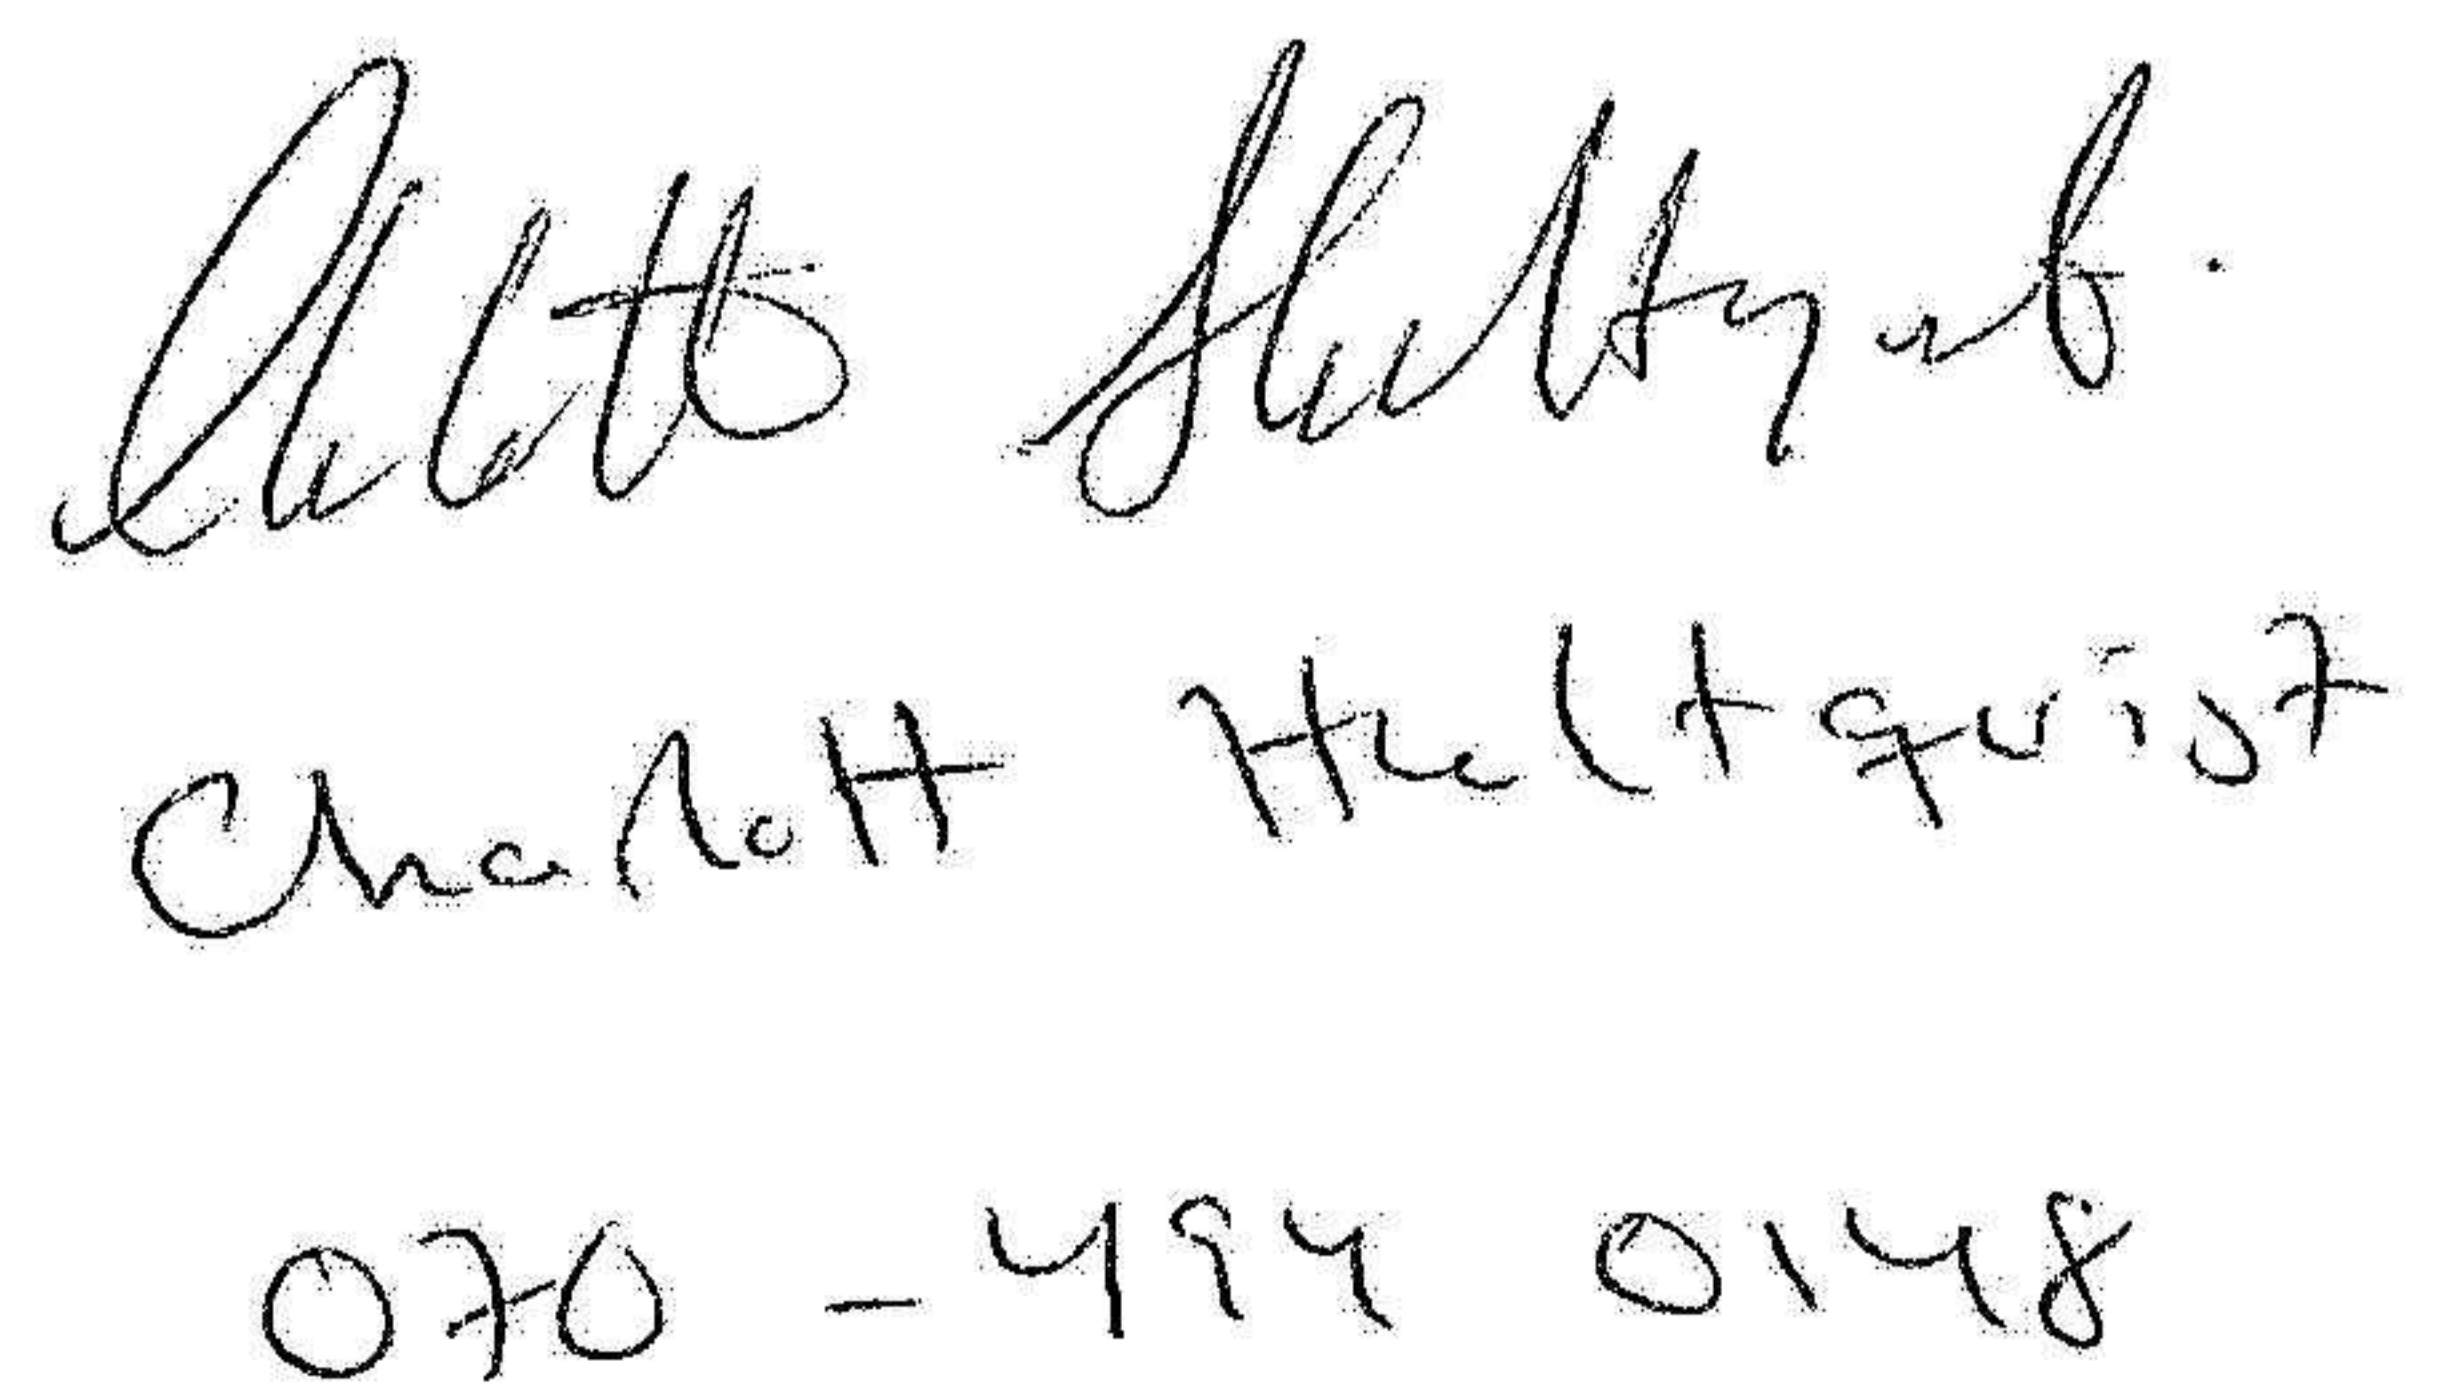 Charlott Hultquist
Charlott Hultquist
070 - 494 0148